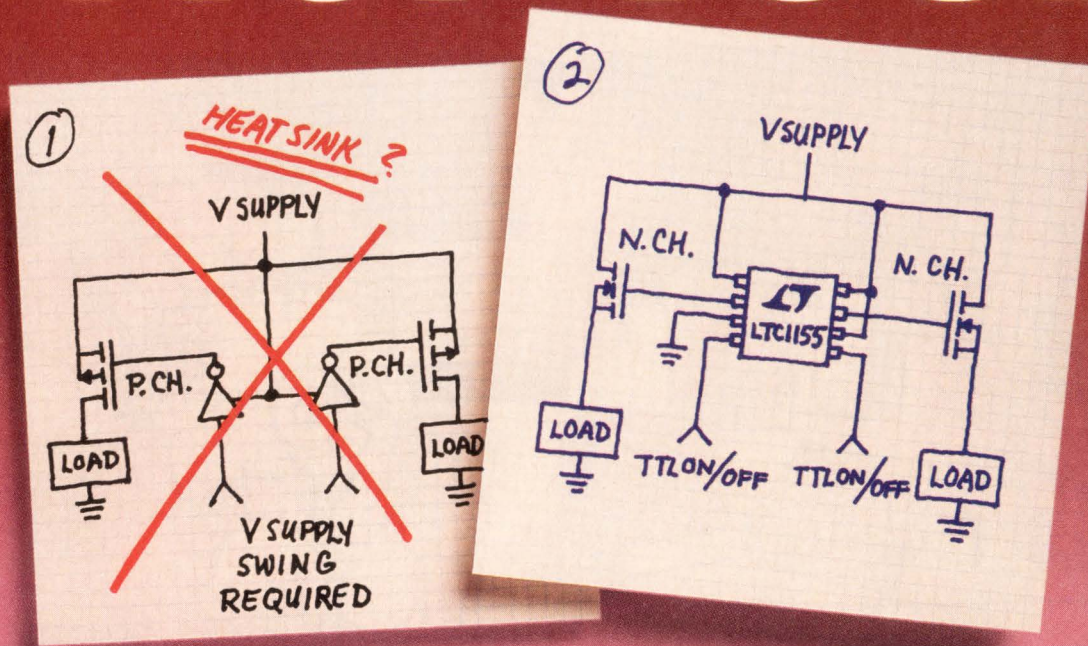 1
HEAT SINK ?
V SUPPLY
P. CH.
P. CH.
LOAD
LOAD
V SUPPLY
SWING
REQUIRED
2
V SUPPLY
N. CH.
N. CH.
LT
LTC1155
LOAD
TTL ON/OFF
TTL ON/OFF
LOAD